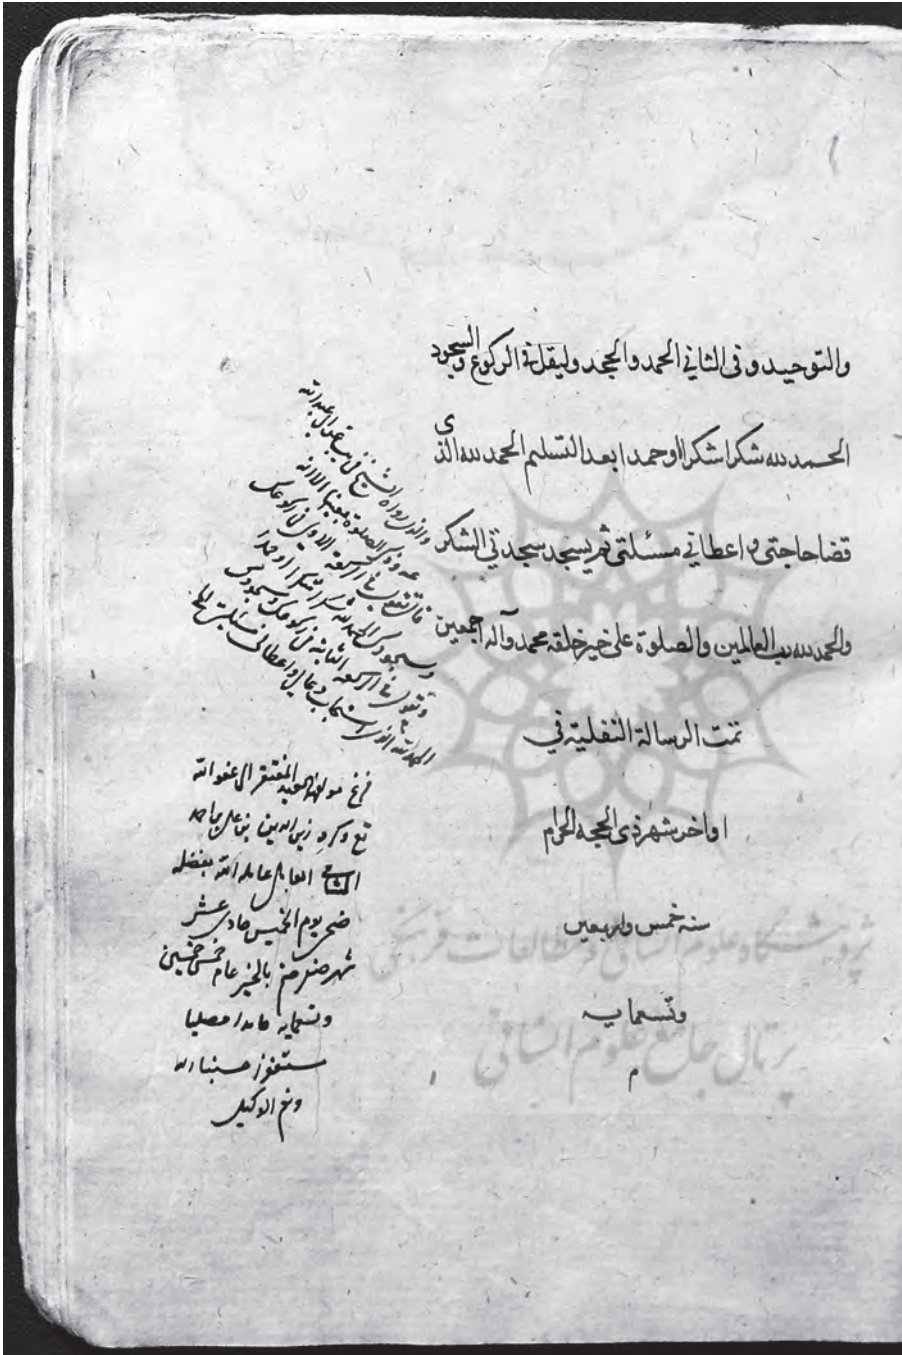 والتوحيد وفى الثاني الحمد والجحد وليقل فى الركوع والسجود
الحمد لله شكرا شكرا وحمدا بعد التسليم الحمد لله الذى
قضا حاجتى واعطاني مسئلتى ثم يسجد سجدتي الشكر
والحمد لله رب العالمين والصلوة على خير خلقه محمد وآله اجمعين
تمت الرسالة النفلية في
اواخر شهر ذى الحجة الحرام
سنه خمس واربعين
وتسمايه
م
والذى رواه الشيخ
وذكر الصلوة
قال تقول فى الركعة الاولى فى ركوعك
وسجودك الحمد لله شكرا شكرا وحمدا
وتقول فى الركعة الثانية فى ركوعك وسجودك
الحمد لله الذى استجاب دعائى واعطانى مسئلتى
فرغ مولفها العبد المفتقر الى عفو الله
تع وكرمه زين الدين بن على بن احمد
الشامي العاملى عامله الله بفضله
ضحى يوم الخميس حادى عشر
شهر صفر ختم بالخير عام خمس وخمسين
وتسمايه حامدا مصليا
مستغفرا حسبنا الله
ونعم الوكيل
پژوهشگاه علوم انسانی و مطالعات فرهنگی
پرتال جامع علوم انسانی